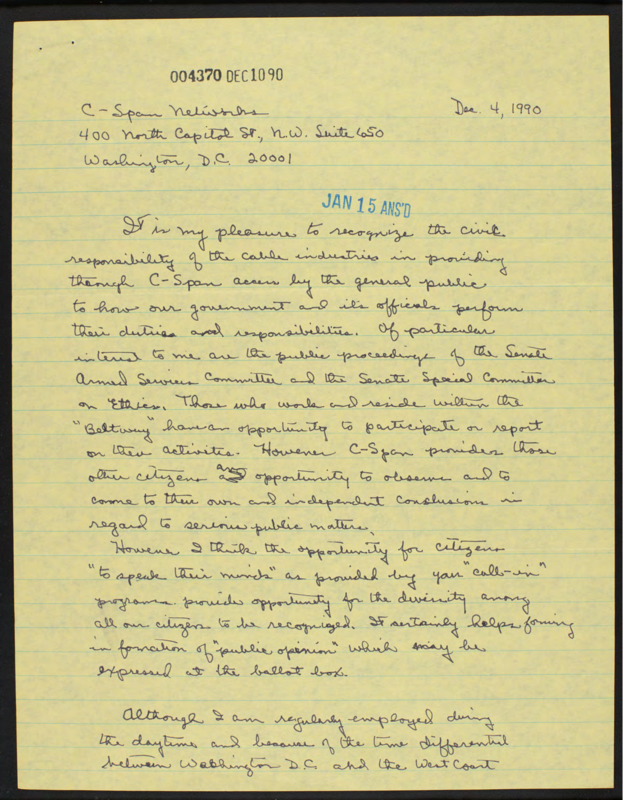 004370 DEC1090
C-Span Networks
Dec. 4, 1990
400 North Capitol St., N.W. Suite 650
Washington, D.C. 20001
JAN 15 ANS'D
It is my pleasure to recognize the civic
responsibility of the cable industries in providing
through C-Span access by the general public
to how our government and its officals perform
their duties and responsibilities. Of particular
interest to me are the public proceedings of the Senate
Armed Services Committee and the Senate Special Committee
on Ethics. Those who work and reside within the
"Beltway" have an opportunity to participate or report
on their activities. However C-Span provides those
other citizens an opportunity to observe and to
come to their own and independent conclusions in
regard to serious public matters.
However I think the opportunity for citizens
"to speak their minds" as provided by your "call-in"
programs provide opportunity for the diversity among
all our citizens to be recognized. It certainly helps forming
in formation of "public opinion" which may be
expressed at the ballot box.
Although I am regularly employed during
the daytime and because of the time differential
between Washington D.C. and the West Coast